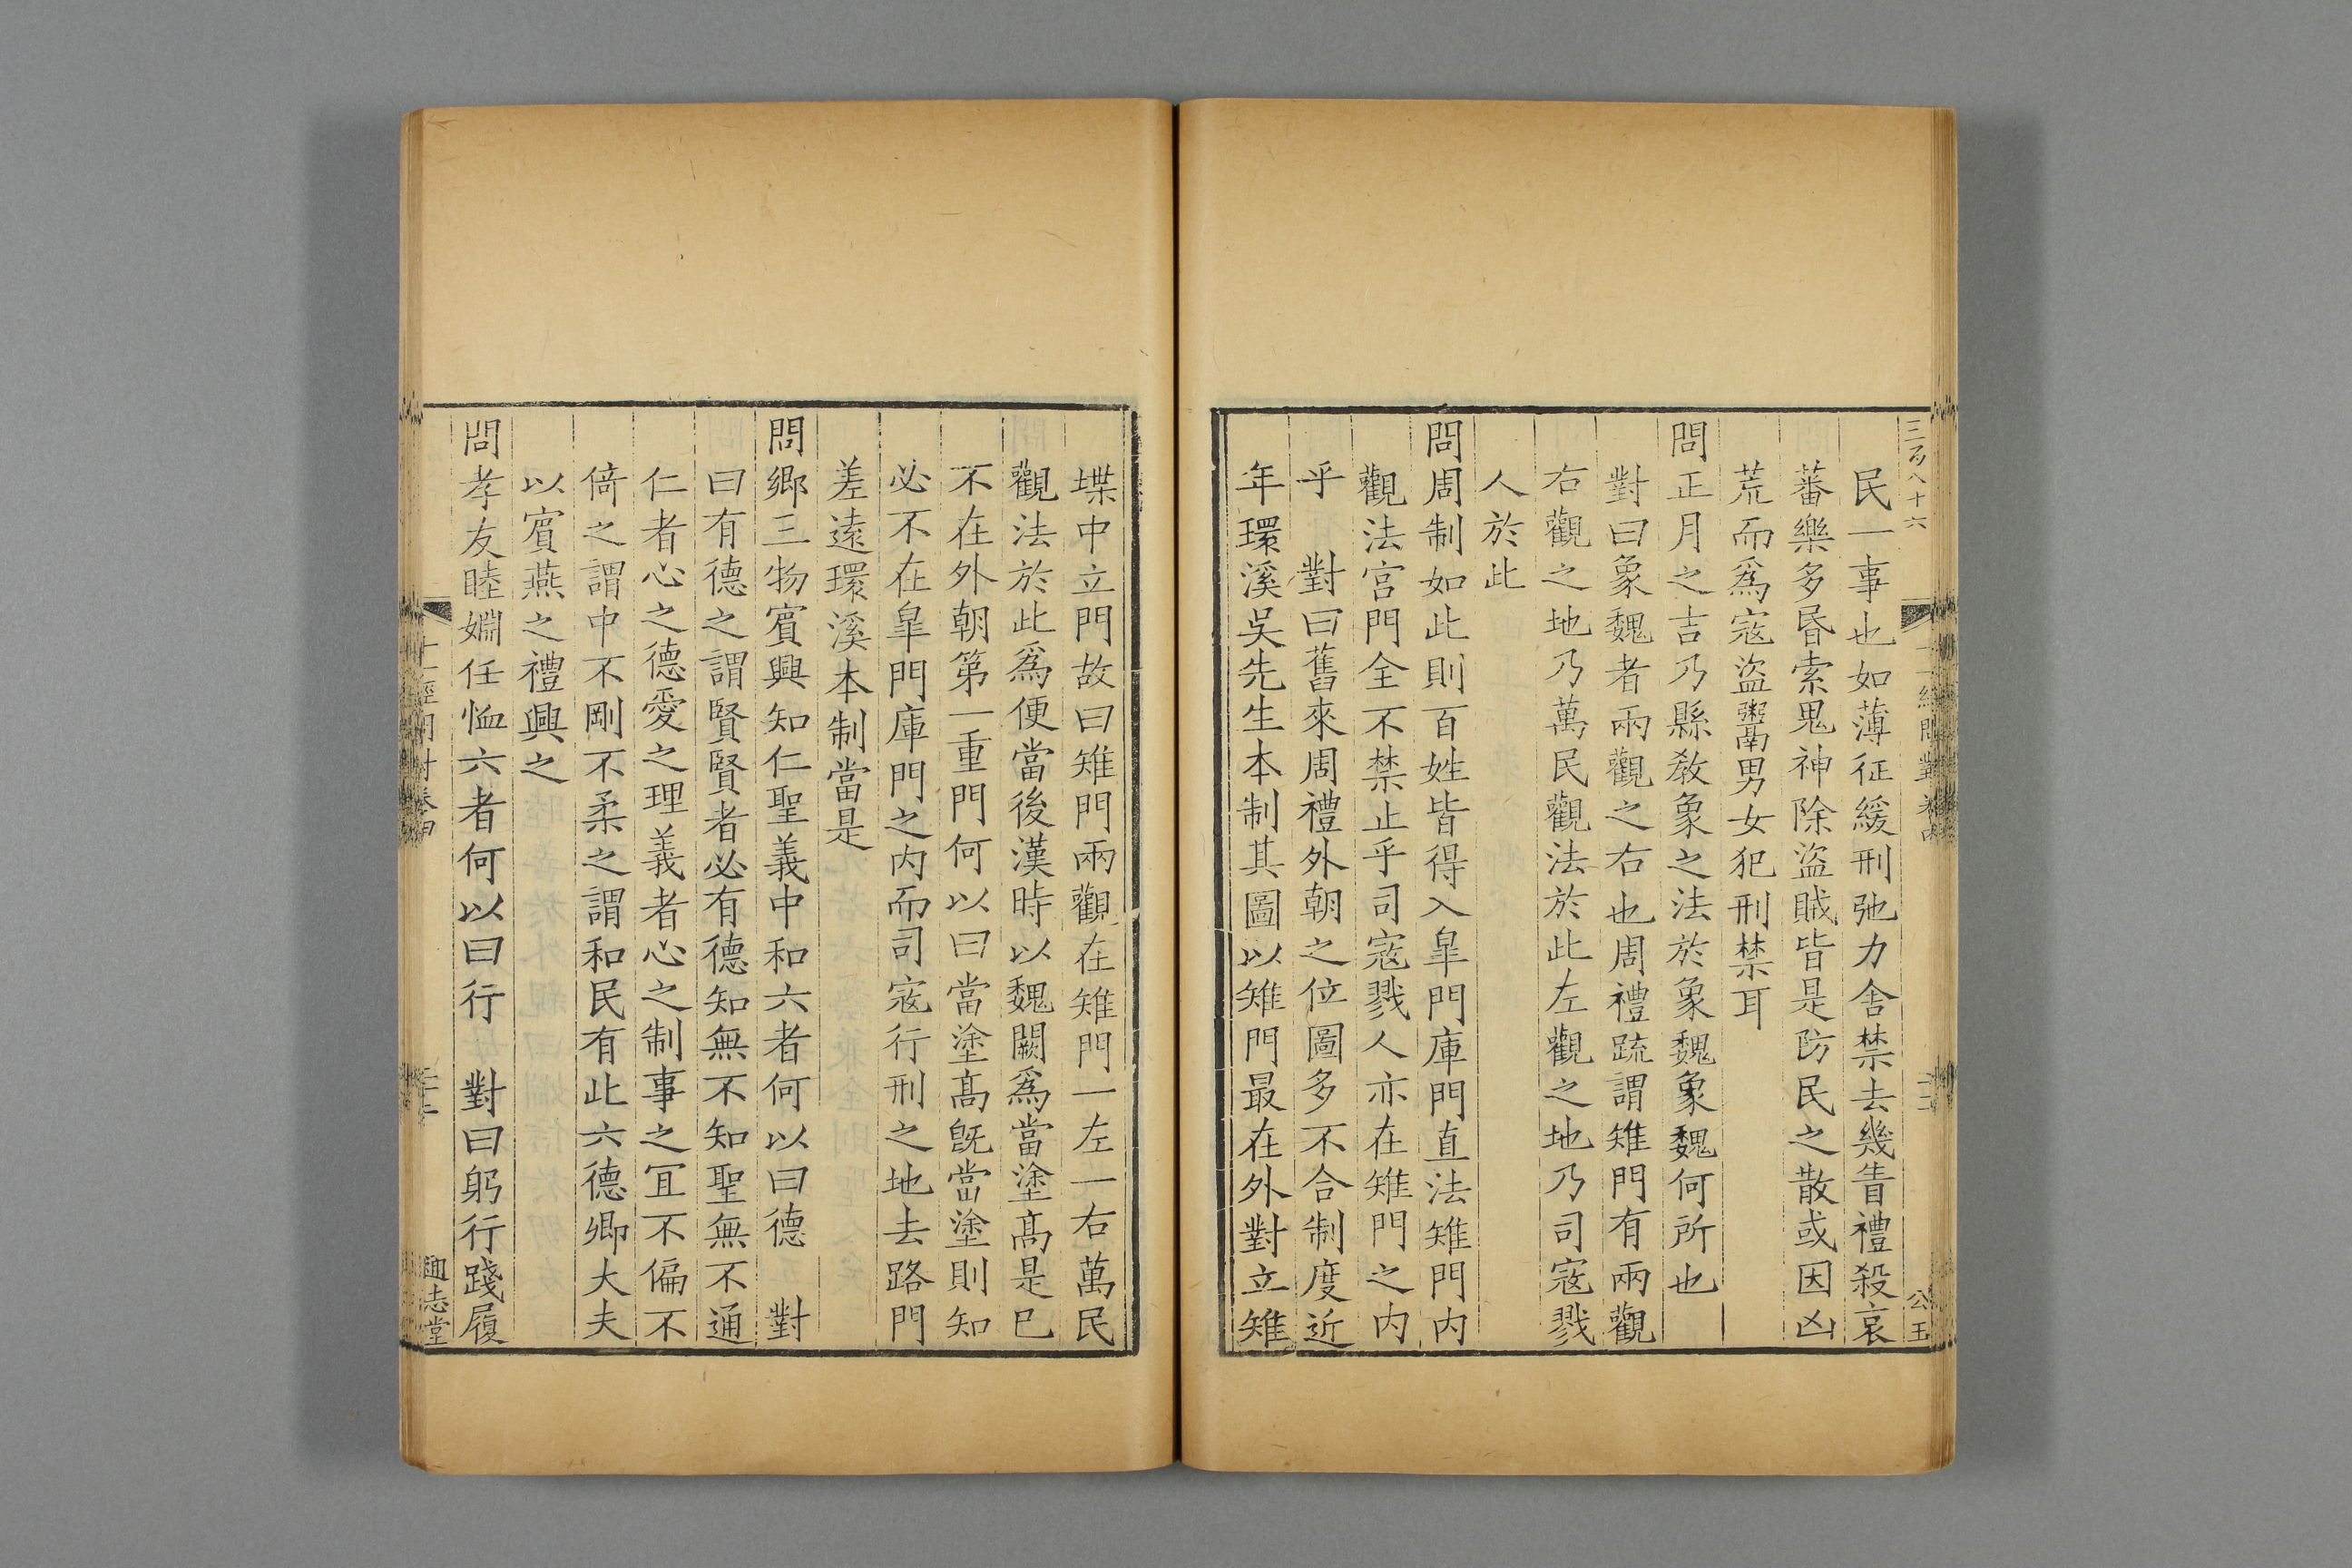 三百八十六
公玉
民一事也如薄征緩刑弛力舍禁去幾眚禮殺哀
蕃樂多昏索鬼神除盜賊皆是防民之散或因凶
荒而爲寇盜鬻男女犯刑禁耳
問正月之吉乃縣敎象之法於象魏象魏何所也
對曰象魏者兩觀之右也周禮疏謂雉門有兩觀
右觀之地乃萬民觀法於此左觀之地乃司寇戮
人於此
問周制如此則百姓皆得入臯門庫門直法雉門内
觀法宫門全不禁止乎司寇戮人亦在雉門之内
乎　對曰舊來周禮外朝之位圖多不合制度近
年環溪吳先生本制其圖以雉門最在外對立雉
堞中立門故曰雉門兩觀在雉門一左一右萬民
觀法於此爲便當後漢時以魏闕爲當塗髙是已
不在外朝第一重門何以曰當塗髙旣當塗則知
必不在臯門庫門之内而司寇行刑之地去路門
差遠環溪本制當是
問鄉三物賓興知仁聖義中和六者何以曰德　對
曰有德之謂賢賢者必有德知無不知聖無不通
仁者心之德愛之理義者心之制事之冝不偏不
倚之謂中不剛不柔之謂和民有此六德卿大夫
以賓燕之禮興之
問孝友睦婣任恤六者何以曰行　對曰躬行踐履
十一經問對卷四
通志堂